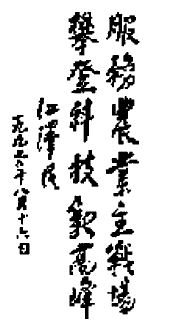 服務農業主戰場
攀登科技新高峰
江澤民
八月十六日